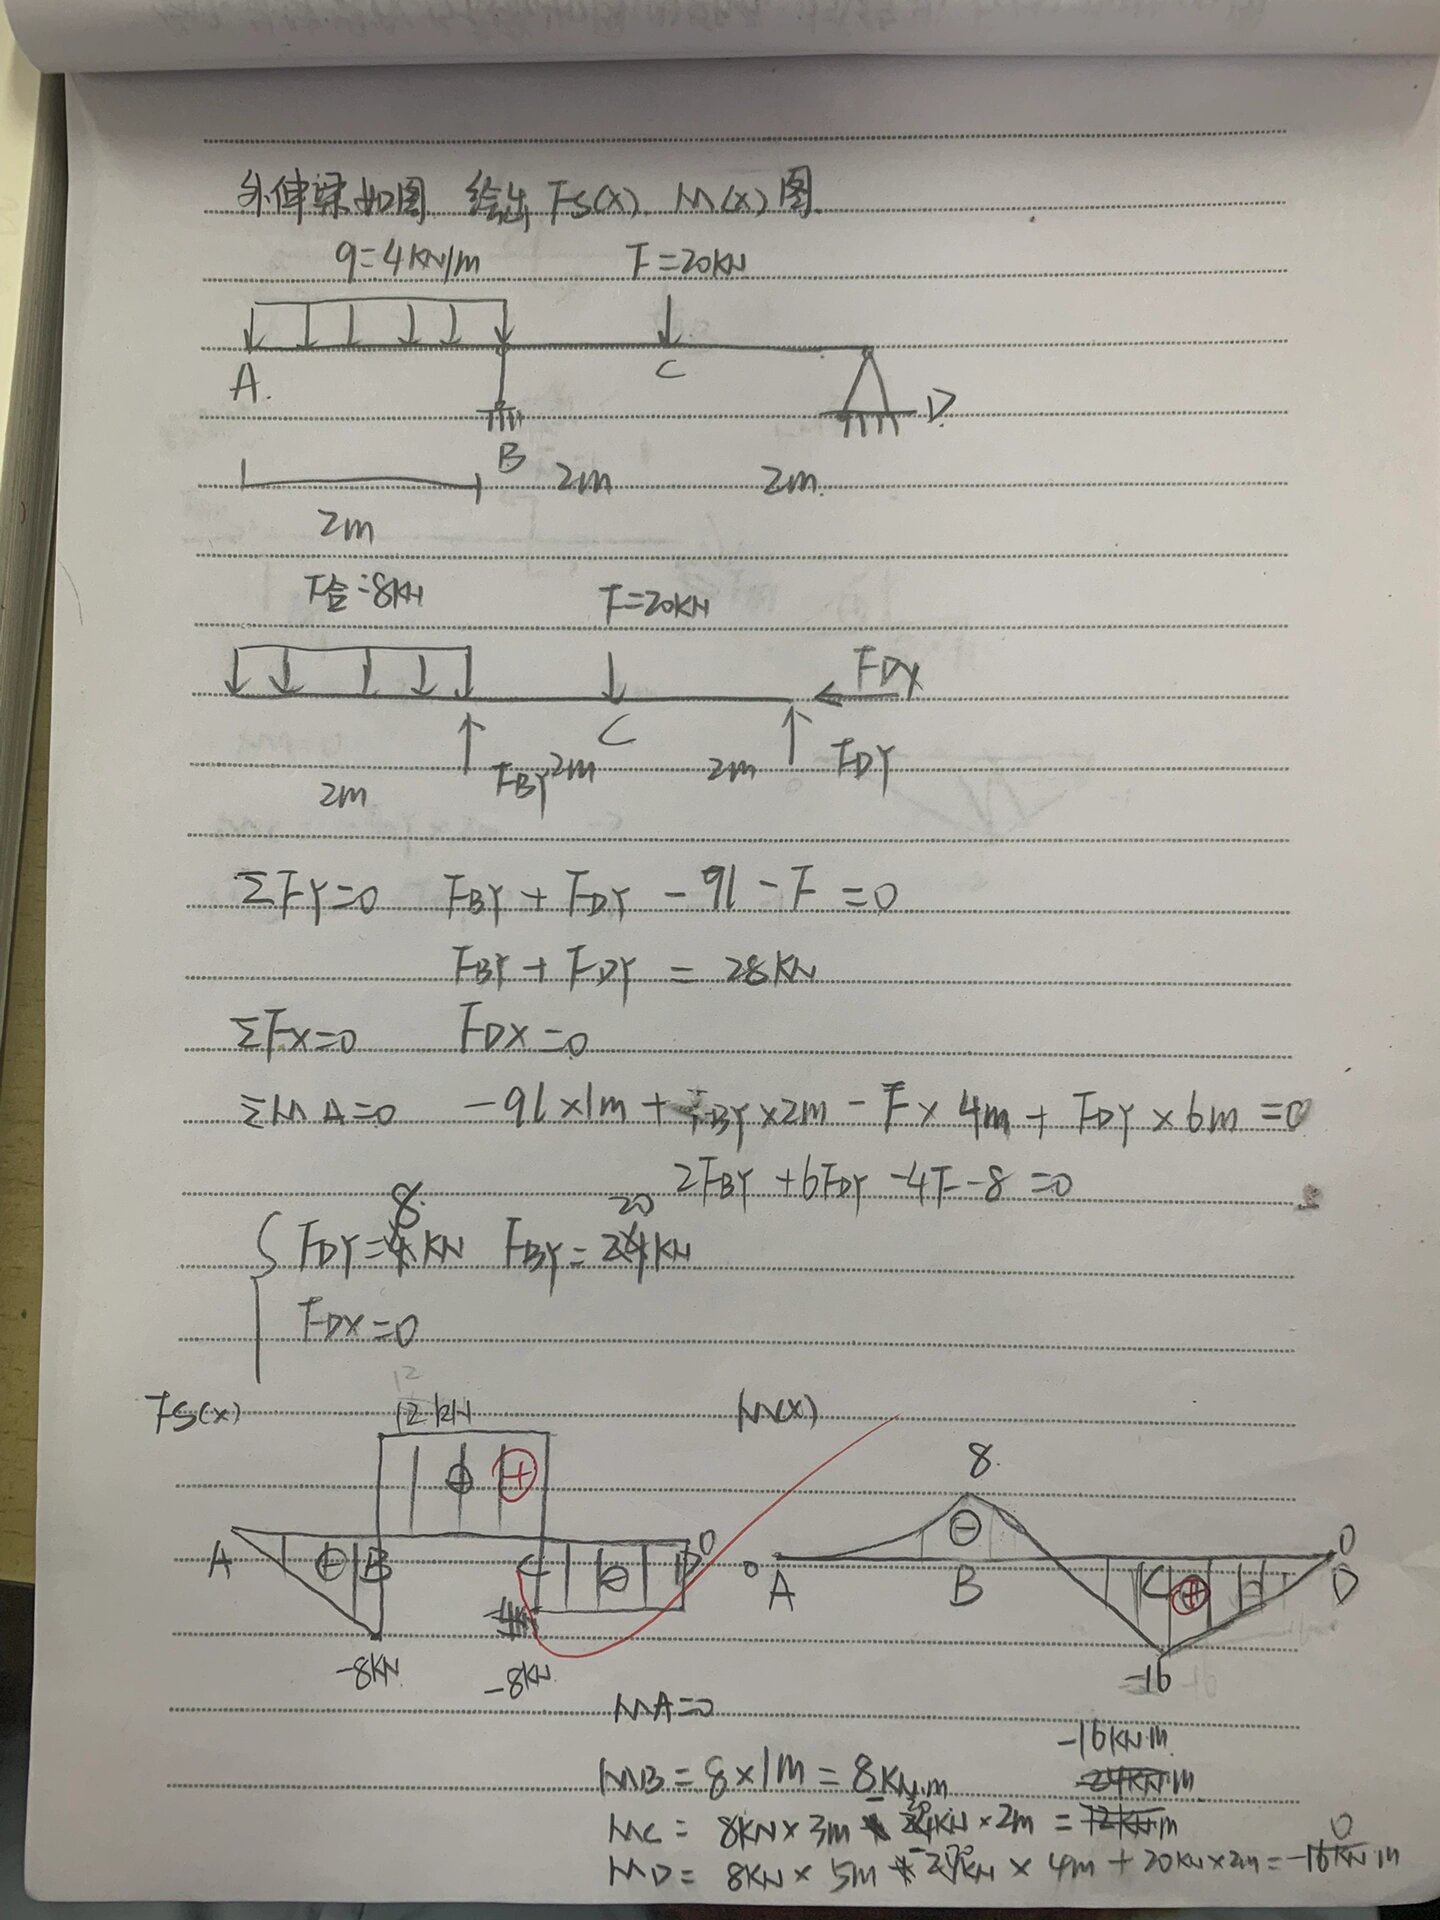 外伸梁如图 绘出 Fs(x). M(x)图.
q=4KN/m F=20KN
A. C D.
B 2m 2m.
2m
F合=8KN F=20KN
FDX
C
FBY 2m 2m FDY
2m
ΣFY=0 FBY + FDY - ql - F = 0
FBY + FDY = 28KN
ΣFX=0 FDX=0
ΣMA=0 -ql×1m + FBY×2m - F×4m + FDY×6m =0
2FBY +6FDY -4F-8=0
8 20
FDY= KN FBY= KN
FDX=0
12
Fs(x) 12KN M(x)
⊕ + 8
A ⊖ B C ⊖ D 0 0 A ⊖ B C ⊕ D 0
-8KN -8KN -16
MA=0
-16KN.m
MB = 8×1m = 8KN.m -24KN.m
MC = 8KN×3m - 20KN×2m = 12KN.m
0
MD = 8KN×5m - 20KN×4m + 20KN×2m = -16KN.m